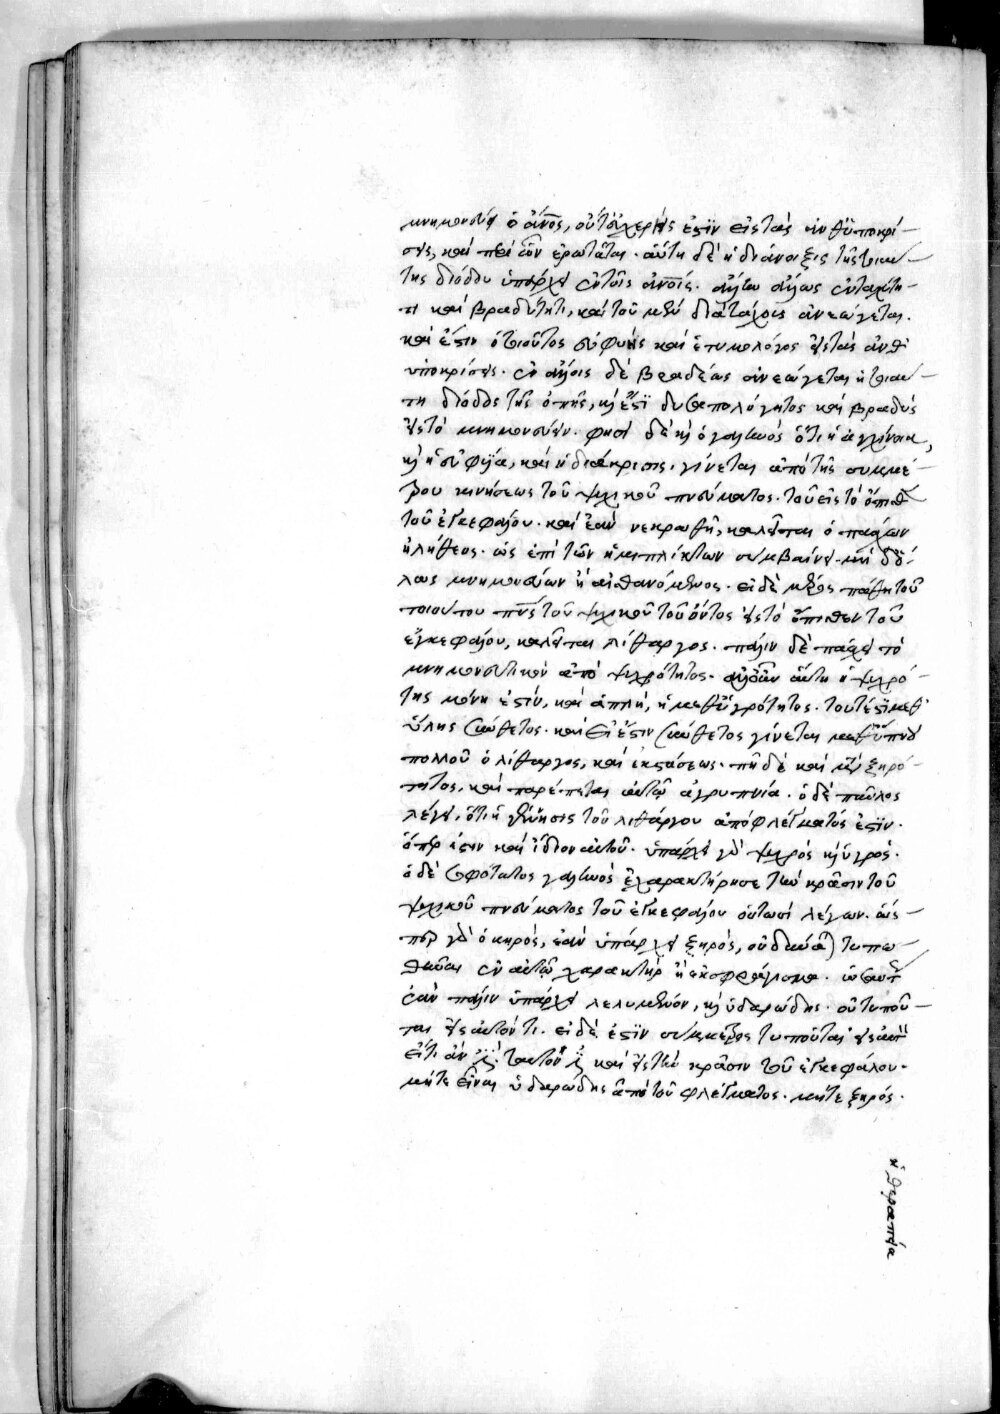 μνημονεύει ὁ ἄνος, οὐτ εὐχερής ἐστὶν εἰς τὰς ἀνθϋποκρί-
σεις, καὶ περὶ ὧν ἐρωτᾶται. αὕτη δὲ ἡ διάνοιξις τῆς τοιαύ-
της διόδου ὑπάρχει ἐν τοῖς ἀνοις. ἄλλω ἄλλως ἐν ταχύτη-
τι καὶ βραδύτητι, καὶ τοῦ μὲν διὰ τάχους ἀνεώγεται.
καὶ ἔστιν ὁ τοιοῦτος εὐφυὴς καὶ ἑτυμολόγος εἰς τὰς ἀνθ
υποκρίσεις. ἐν ἄλλοις δὲ βραδέως ἀνεώγεται ἡ τοιαύ-
τη δίοδος τῆς ὀπῆς, κὶ ἔστι δυσαπολόγητος καὶ βραδὺς
εἰς τὸ μνημονεύειν. φησὶ δὲ κὶ ὁ γαληνὸς ὅτι ἡ ἀγχίνοια,
κὶ ἡ εὐφυΐα, καὶ ἡ διάκρισις, γίνεται ἀπὸ τῆς συμμέ-
τρου κινήσεως τοῦ ψυχικοῦ πνεύματος. τοῦ εἰς τὸ ὄπισθ
τοῦ ἐγκεφάλου. καὶ ἐὰν νεκρωθῆ, καλεῖται ὁ πάσχων
ἠλίθιος. ὡς ἐπὶ τῶν ἡμιπλήκτων συμβαίνει μὴ δό-
λως μνημονεύων ἢ αἰσθανόμενος. εἰ δὲ μέρος πάθη τοῦ
τοιούτου πνς τοῦ ψυχικοῦ τοῦ ὄντος εἰς τὸ ὄπισθεν τοῦ
ἐγκεφάλου, καλεῖται λίθαργος. πάλιν δὲ πάσχει τὸ
μνημονευτικὸν ἀπὸ ψυχρότητος. αὕτη ἡ ψυχρό-
της μόνη ἐστὶν, καὶ ἁπλῆ, ἢ μεθ ὑγρότητος. τουτέστι μεθ
ὕλης σύνθετος. καὶ εἰ ἔστιν σύνθετος γίνεται μεθ ὕπνου
πολλοῦ ὁ λίθαργος, καὶ ἐκστάσεως. πῆ δὲ καὶ μετὰ ξηρό-
τητος, καὶ παρέπεται αὐτῷ ἀγρυπνία. ὁ δὲ παῦλος
λέγει, ὅτι ἡ γέννησις τοῦ λιθάργου ἀπὸ φλέγματός ἐστιν.
ὅπερ ἐστὶν καὶ ἴδιον αὐτοῦ. ὑπάρχει γὰρ ψυχρὸς κὶ ὑγρός.
ὁ δὲ σοφώτατος γαληνὸς ἐχαρακτήρησε τὴν κρᾶσιν τοῦ
ψυχικοῦ πνεύματος τοῦ ἐγκεφάλου οὑτωσὶ λέγων. ὥσ-
περ γὰρ ὁ κηρὸς, ἐὰν ὑπάρχει ξηρὸς, οὐ δύναται τυπω-
θῆναι ἐν αὐτῷ χαρακτὴρ ἢ ἐκσφράγισμα. ὡσαύτ
ἐὰν πάλιν ὑπάρχει λελυμένον, κὶ ὑδαρώδης. οὐ τυποῦ-
ται εἰς αὐτὸν τι. εἰ δέ ἐστιν συμμέτρος τυποῦται εἰς αὐτ
εἴτι ἂν ᾖ. ταυτὸν καὶ εἰς τὴν κρᾶσιν τοῦ ἐγκεφάλου.
μήτε εἶναι ὑδαρώδης ἀπὸ τοῦ φλέγματος. μήτε ξηρός.
ἡ θεραπεία